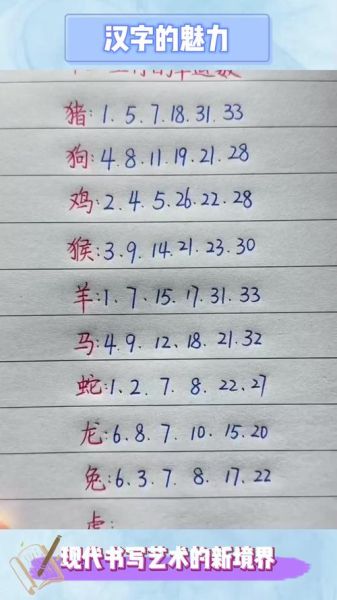 汉字的魅力
猪:1.5.7.18.31.33
狗:4.8.11.19.21.28
鸡:2.4.5.26.22.28
猴:3.9.14.21.23.30
羊:1.7.15.17.31.33
马:4.9.12.18.21.32
蛇:1.2.7.8.22.27
龙:6.8.7.10.15.20
兔:6.3.7.8.17.22
虎:
现代书写艺术的新境界